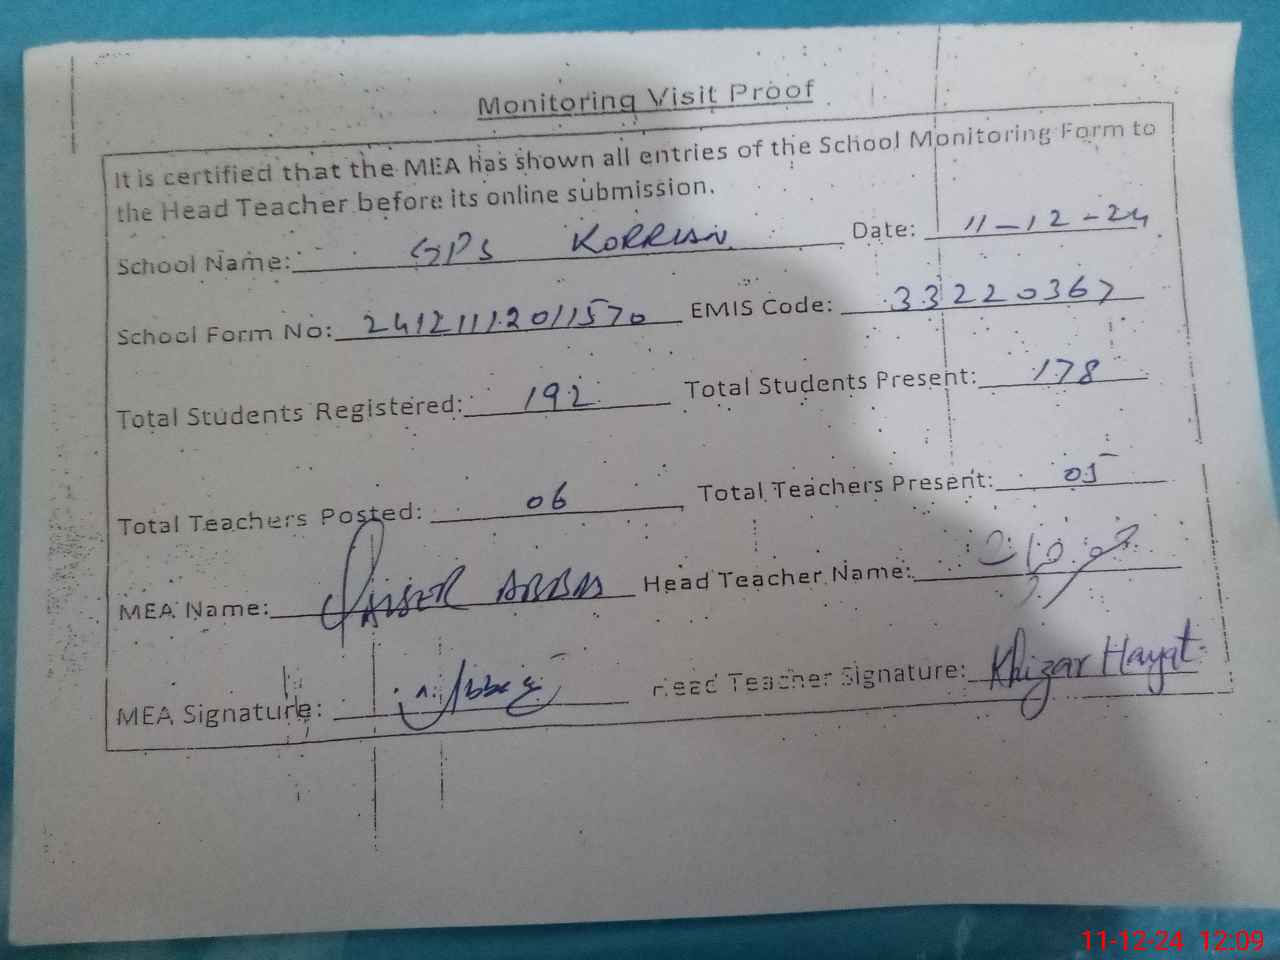 Monitoring Visit Proof
It is certified that the MEA has shown all entries of the School Monitoring Form to
the Head Teacher before its online submission.
School Name: GPS KORRIAN Date: 11-12-24
School Form No: 2412111201 1570 EMIS Code: 33220367
Total Students Registered: 192 Total Students Present: 178
Total Teachers Posted: 06 Total Teachers Present: 05
MEA Name: QAISER ABBAS Head Teacher Name:
MEA Signature: Head Teacher Signature: Khizar Hayat
11-12-24 12:09